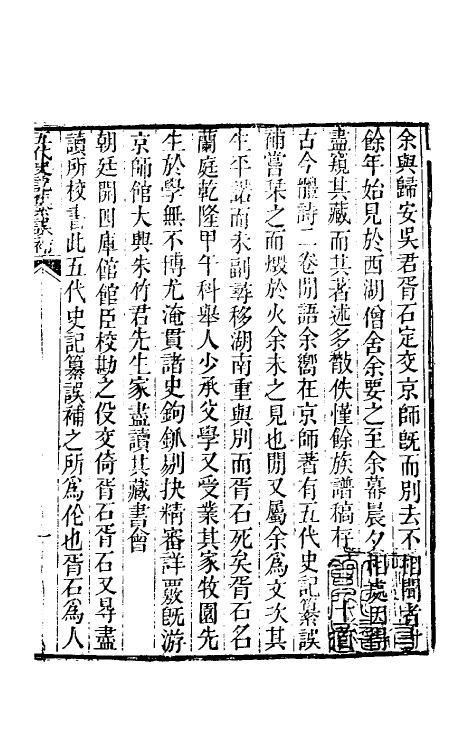 余與歸安吳君胥石定交京師旣而別去不相聞者十
餘年始見於西湖僧舍余要之至余幕晨夕相處因得
盡窺其藏而其著述多散佚僅餘族譜稿存
古今體詩二卷閒語余嚮在京師著有五代史記纂誤
補嘗棨之而燬於火余未之見也閒又屬余爲文次其
生平諾而未副尋移湖南重與別而胥石死矣胥石名
蘭庭乾隆甲午科舉人少承父學又受業其家牧園先
生於學無不博尤淹貫諸史鉤釽剔抉精審詳覈旣游
京師館大興朱竹君先生家盡讀其藏書會
朝廷開四庫館館臣校勘之役交倚胥石又㝵盡
讀所校書此五代史記纂誤補之所爲作也胥石爲人
五代史記纂誤補